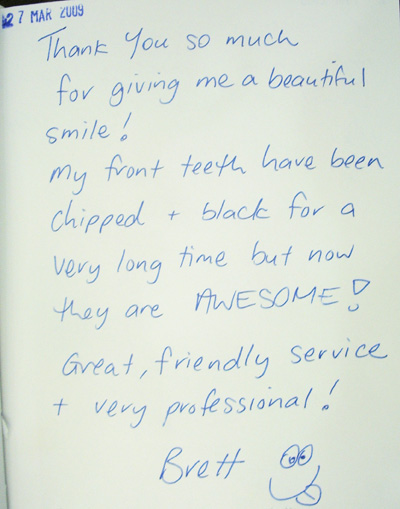 27 MAR 2009
Thank you so much
for giving me a beautiful
smile!
My front teeth have been
chipped + black for a
very long time but now
they are AWESOME!
Great, friendly service
+ very professional!
Brett